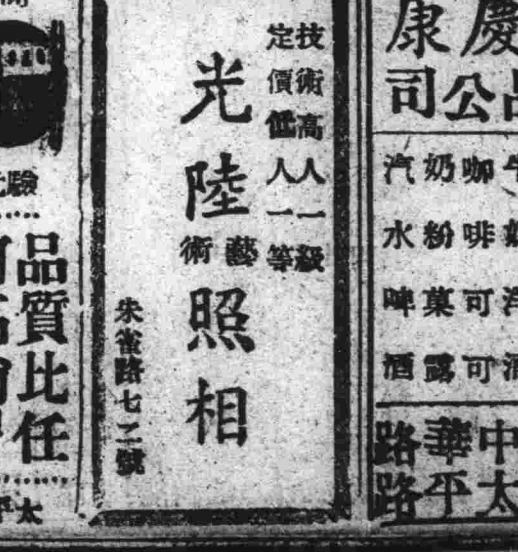 慶康
公司
咖啡可可
奶粉菓露
汽水啤酒
中華路
太平路
技術高人一級
定價低人一等
光陸藝術照相
朱雀路七二號
品質比任